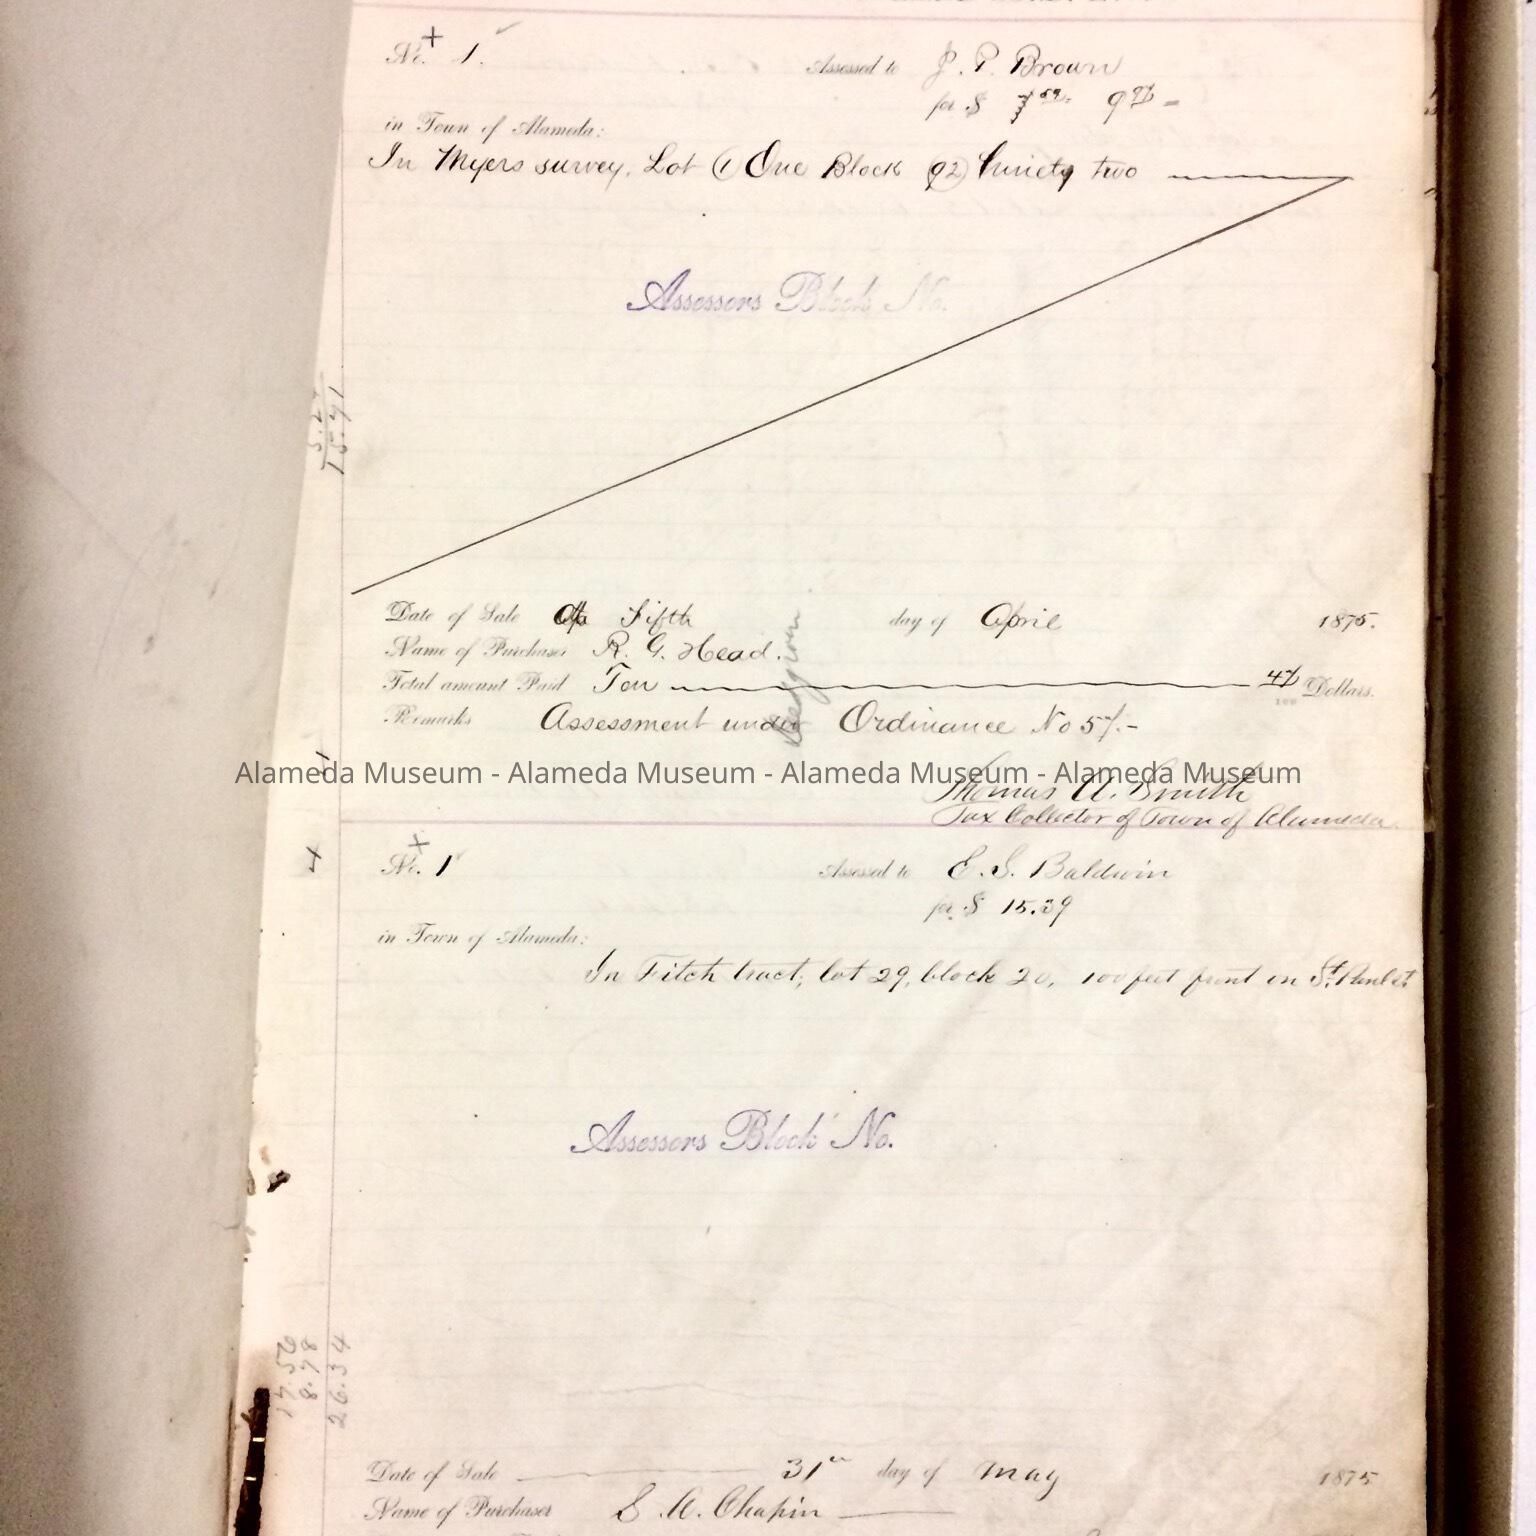 +
No. 1.
Assessed to J. P. Brown
for $
in Town of Alameda:
In Myers survey, Lot (1) One Block (92) Ninety two
Assessors Block No.
15.91
Date of Sale Fifth day of April 1875.
Name of Purchaser R. G. Head.
Total amount Paid Ten Dollars.
100
Remarks Assessment under Ordinance No
Alameda Museum - Alameda Museum - Alameda Museum - Alameda Museum
Thomas A. Smith
Tax Collector of Town of Alameda.
+
No. 1
Assessed to E. S. Baldwin
for $ 15.39
in Town of Alameda:
In Fitch tract, lot 29, block 20, 100 feet front on St.
Assessors Block No.
17.56
8.78
26.34
Date of Sale 31st day of May 1875
Name of Purchaser S. A. Chapin